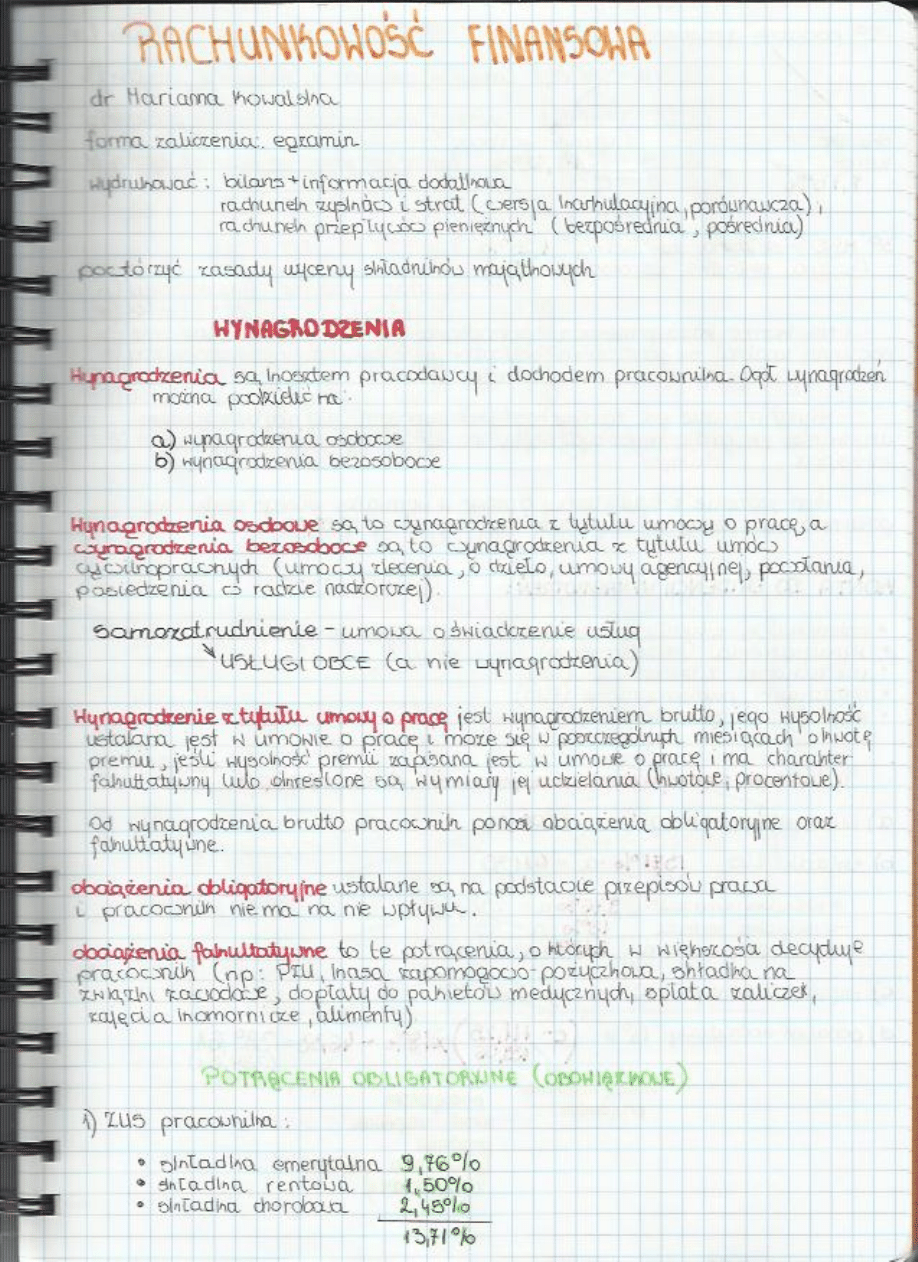 RACHUNKOWOŚĆ FINANSOWA
dr Marianna Kowalska
forma zaliczenia: egzamin
wydrukować: bilans + informacja dodatkowa
rachunek zysków i strat (wersja kalkulacyjna, porównawcza),
rachunek przepływów pieniężnych (bezpośrednia, pośrednia)
powtórzyć zasady wyceny składników majątkowych
WYNAGRODZENIA
Wynagrodzenia są kosztem pracodawcy i dochodem pracownika. Ogół wynagrodzeń
można podzielić na:
a) wynagrodzenia osobowe
b) wynagrodzenia bezosobowe
Wynagrodzenia osobowe są to wynagrodzenia z tytułu umowy o pracę, a
wynagrodzenia bezosobowe są to wynagrodzenia z tytułu umów
cywilnoprawnych (umowy zlecenia, o dzieło, umowy agencyjnej, powołania,
posiedzenia w radzie nadzorczej).
samozatrudnienie - umowa o świadczenie usług
USŁUGI OBCE (a nie wynagrodzenia)
Wynagrodzenie z tytułu umowy o pracę jest wynagrodzeniem brutto, jego wysokość
ustalana jest w umowie o pracę i może się w poszczególnych miesiącach o kwotę
premii, jeśli wysokość premii zapisana jest w umowie o pracę i ma charakter
fakultatywny lub określone są wymiary jej udzielania (kwotowe, procentowe).
Od wynagrodzenia brutto pracownik ponosi obciążenia obligatoryjne oraz
fakultatywne.
obciążenia obligatoryjne ustalane są na podstawie przepisów prawa
i pracownik nie ma na nie wpływu.
obciążenia fakultatywne to te potrącenia, o których w większości decyduje
pracownik (np: PZU, kasa zapomogowo-pożyczkowa, składka na
związki zawodowe, dopłaty do pakietów medycznych, spłata zaliczek,
zajęcia komornicze, alimenty)
POTRĄCENIA OBLIGATORYJNE (OBOWIĄZKOWE)
1) ZUS pracownika:
• składka emerytalna 9,76%
• składka rentowa 1,50%
• składka chorobowa 2,45%
13,71%